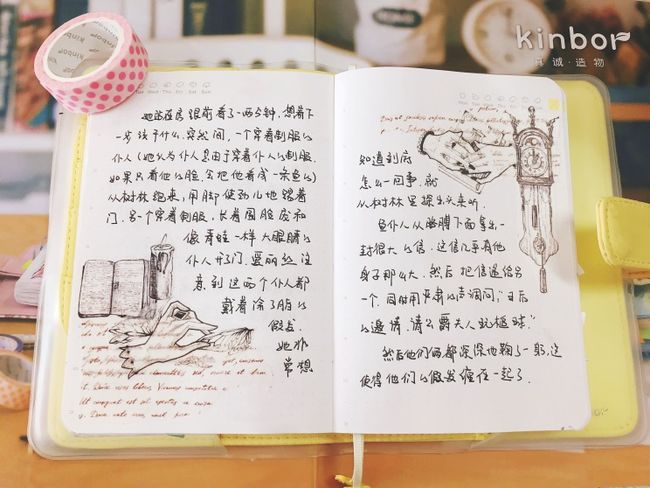 kinbor
真诚·造物
kinbor
她站在房跟前看了一两分钟,想着下
一步该干什么.突然间,一个穿着制服的
仆人(她认为仆人是由于穿着仆人的制服.
如果只看他的脸,会把他看成一条鱼的)
从树林跑来,用脚使劲儿地踢着
门.另一个穿着制服,长着圆脸庞和
像青蛙一样大眼睛的
仆人开了门,爱丽丝注
意到这两个仆人都
戴着涂了脂的
假发.
她非
常想
知道到底
怎么一回事,就
从树林里探出头来听.
鱼仆人从胳膊下面拿出一
封很大的信,这信几乎有他
身子那么大,然后把信递给另
一个,同时用严肃的声调说:"王后
的邀请:请公爵夫人玩槌球."
然后他们俩都深深地鞠了一躬,这
使得他们的假发缠在一起了.